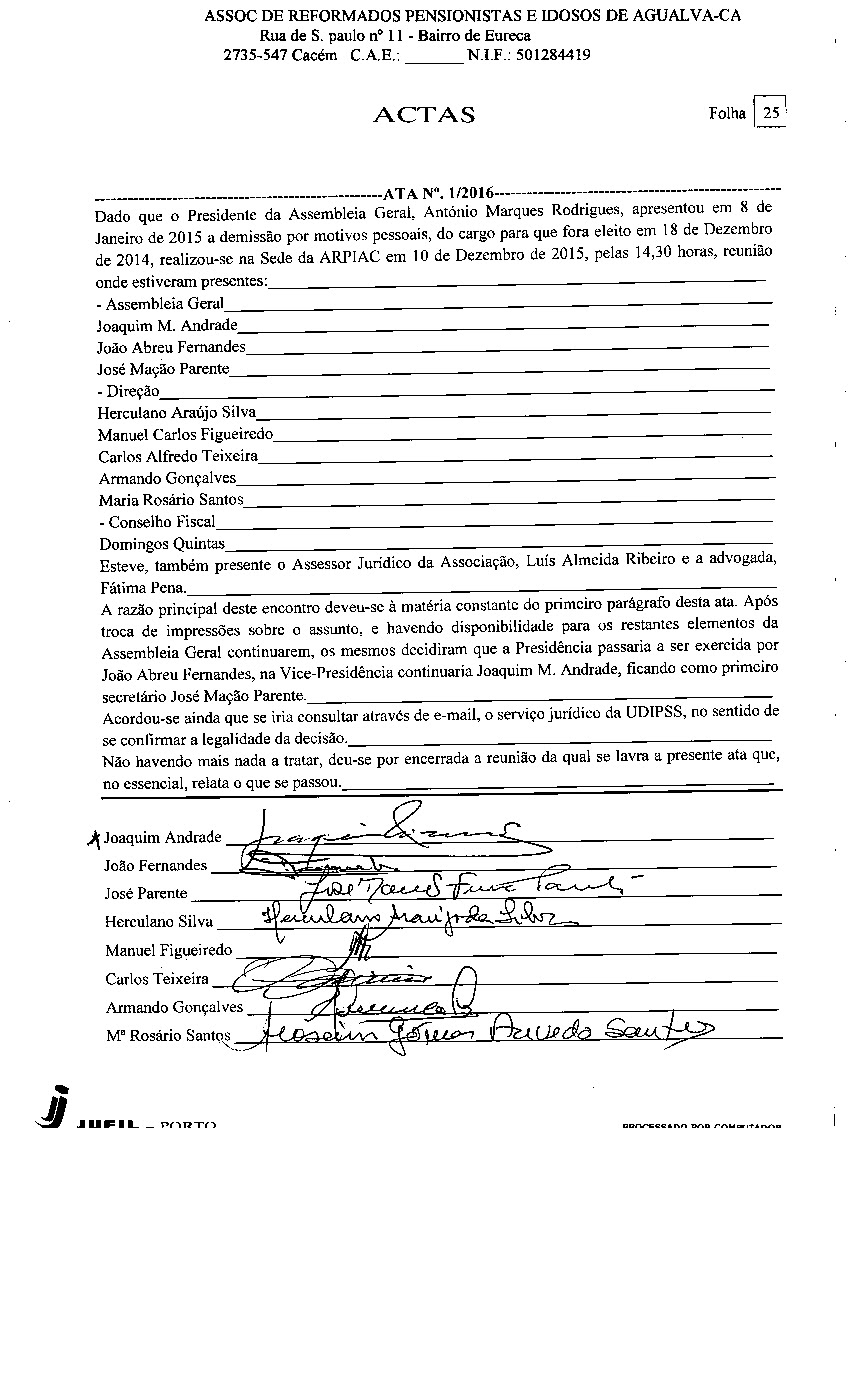 ASSOC DE REFORMADOS PENSIONISTAS E IDOSOS DE AGUALVA-CA
Rua de S. paulo nº 11 - Bairro de Eureca
2735-547 Cacém C.A.E.: _______ N.I.F.: 501284419
ACTAS
Folha 25
ATA Nº. 1/2016
Dado que o Presidente da Assembleia Geral, António Marques Rodrigues, apresentou em 8 de
Janeiro de 2015 a demissão por motivos pessoais, do cargo para que fora eleito em 18 de Dezembro
de 2014, realizou-se na Sede da ARPIAC em 10 de Dezembro de 2015, pelas 14,30 horas, reunião
onde estiveram presentes:
- Assembleia Geral
Joaquim M. Andrade
João Abreu Fernandes
José Mação Parente
- Direção
Herculano Araújo Silva
Manuel Carlos Figueiredo
Carlos Alfredo Teixeira
Armando Gonçalves
Maria Rosário Santos
- Conselho Fiscal
Domingos Quintas
Esteve, também presente o Assessor Jurídico da Associação, Luís Almeida Ribeiro e a advogada,
Fátima Pena.
A razão principal deste encontro deveu-se à matéria constante do primeiro parágrafo desta ata. Após
troca de impressões sobre o assunto, e havendo disponibilidade para os restantes elementos da
Assembleia Geral continuarem, os mesmos decidiram que a Presidência passaria a ser exercida por
João Abreu Fernandes, na Vice-Presidência continuaria Joaquim M. Andrade, ficando como primeiro
secretário José Mação Parente.
Acordou-se ainda que se iria consultar através de e-mail, o serviço jurídico da UDIPSS, no sentido de
se confirmar a legalidade da decisão.
Não havendo mais nada a tratar, deu-se por encerrada a reunião da qual se lavra a presente ata que,
no essencial, relata o que se passou.
Joaquim Andrade
João Fernandes
José Parente
Herculano Silva Herculano Araújo da Silva
Manuel Figueiredo
Carlos Teixeira
Armando Gonçalves
Mª Rosário Santos Gomes Azevedo Santos
JUFIL – PORTO
PROCESSADO POR COMPUTADOR